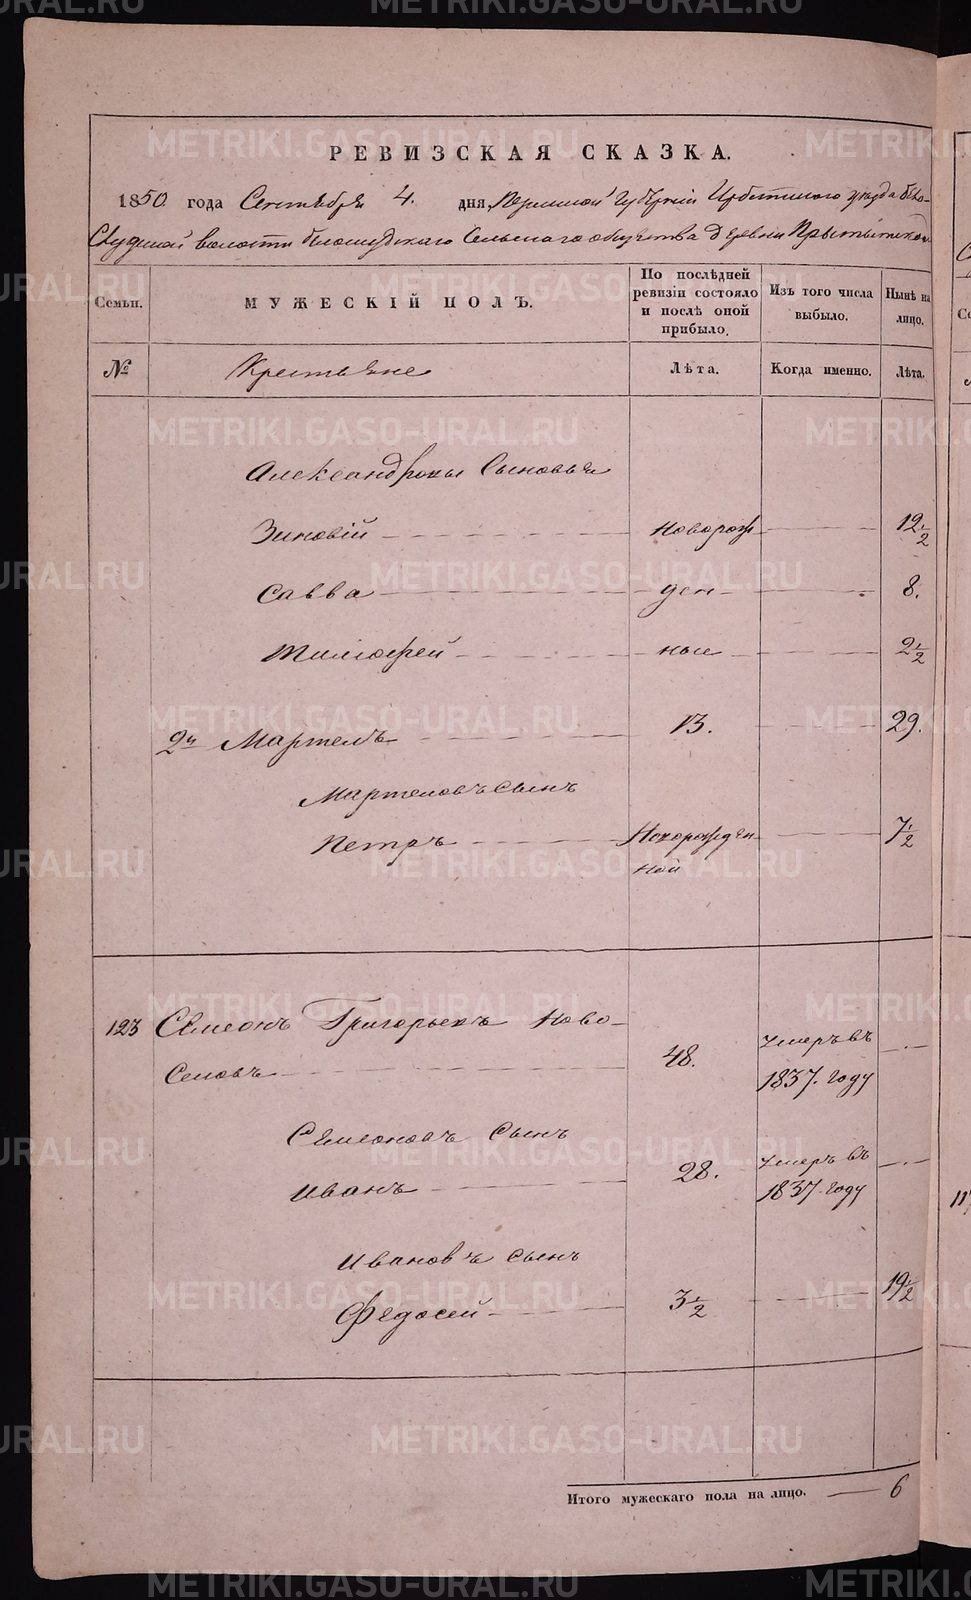 РЕВИЗСКАЯ СКАЗКА.
1850 года Сентября 4. дня, Пермской Губерніи Ирбитского уезда Бело-
Слудской волости белослудскаго Сельскаго общества деревни
Семьи.
МУЖЕСКІЙ ПОЛЪ.
По послѣдней ревизіи состояло и послѣ оной прибыло.
Изъ того числа выбыло.
Нынѣ на лицо.
№
Крестьяне
Лѣта.
Когда именно.
Лѣта.
Александровы Сыновья
Зиновій новорож 12½
Савва ден 8.
Тимофей ные 2½
2й Мартемъ 13. 29.
Мартемовъ сынъ
Петръ Новорожден 7½
ной
123 Семеонъ Григорьевъ Ново-
48. умеръ въ
Селовъ 1837. году
Семеоновъ Сынъ
28. умеръ въ
Иванъ 1837. году
Ивановъ сынъ
Федосей 3½ 19½
Итого мужескаго пола на лицо. 6
METRIKI.GASO-URAL.RU